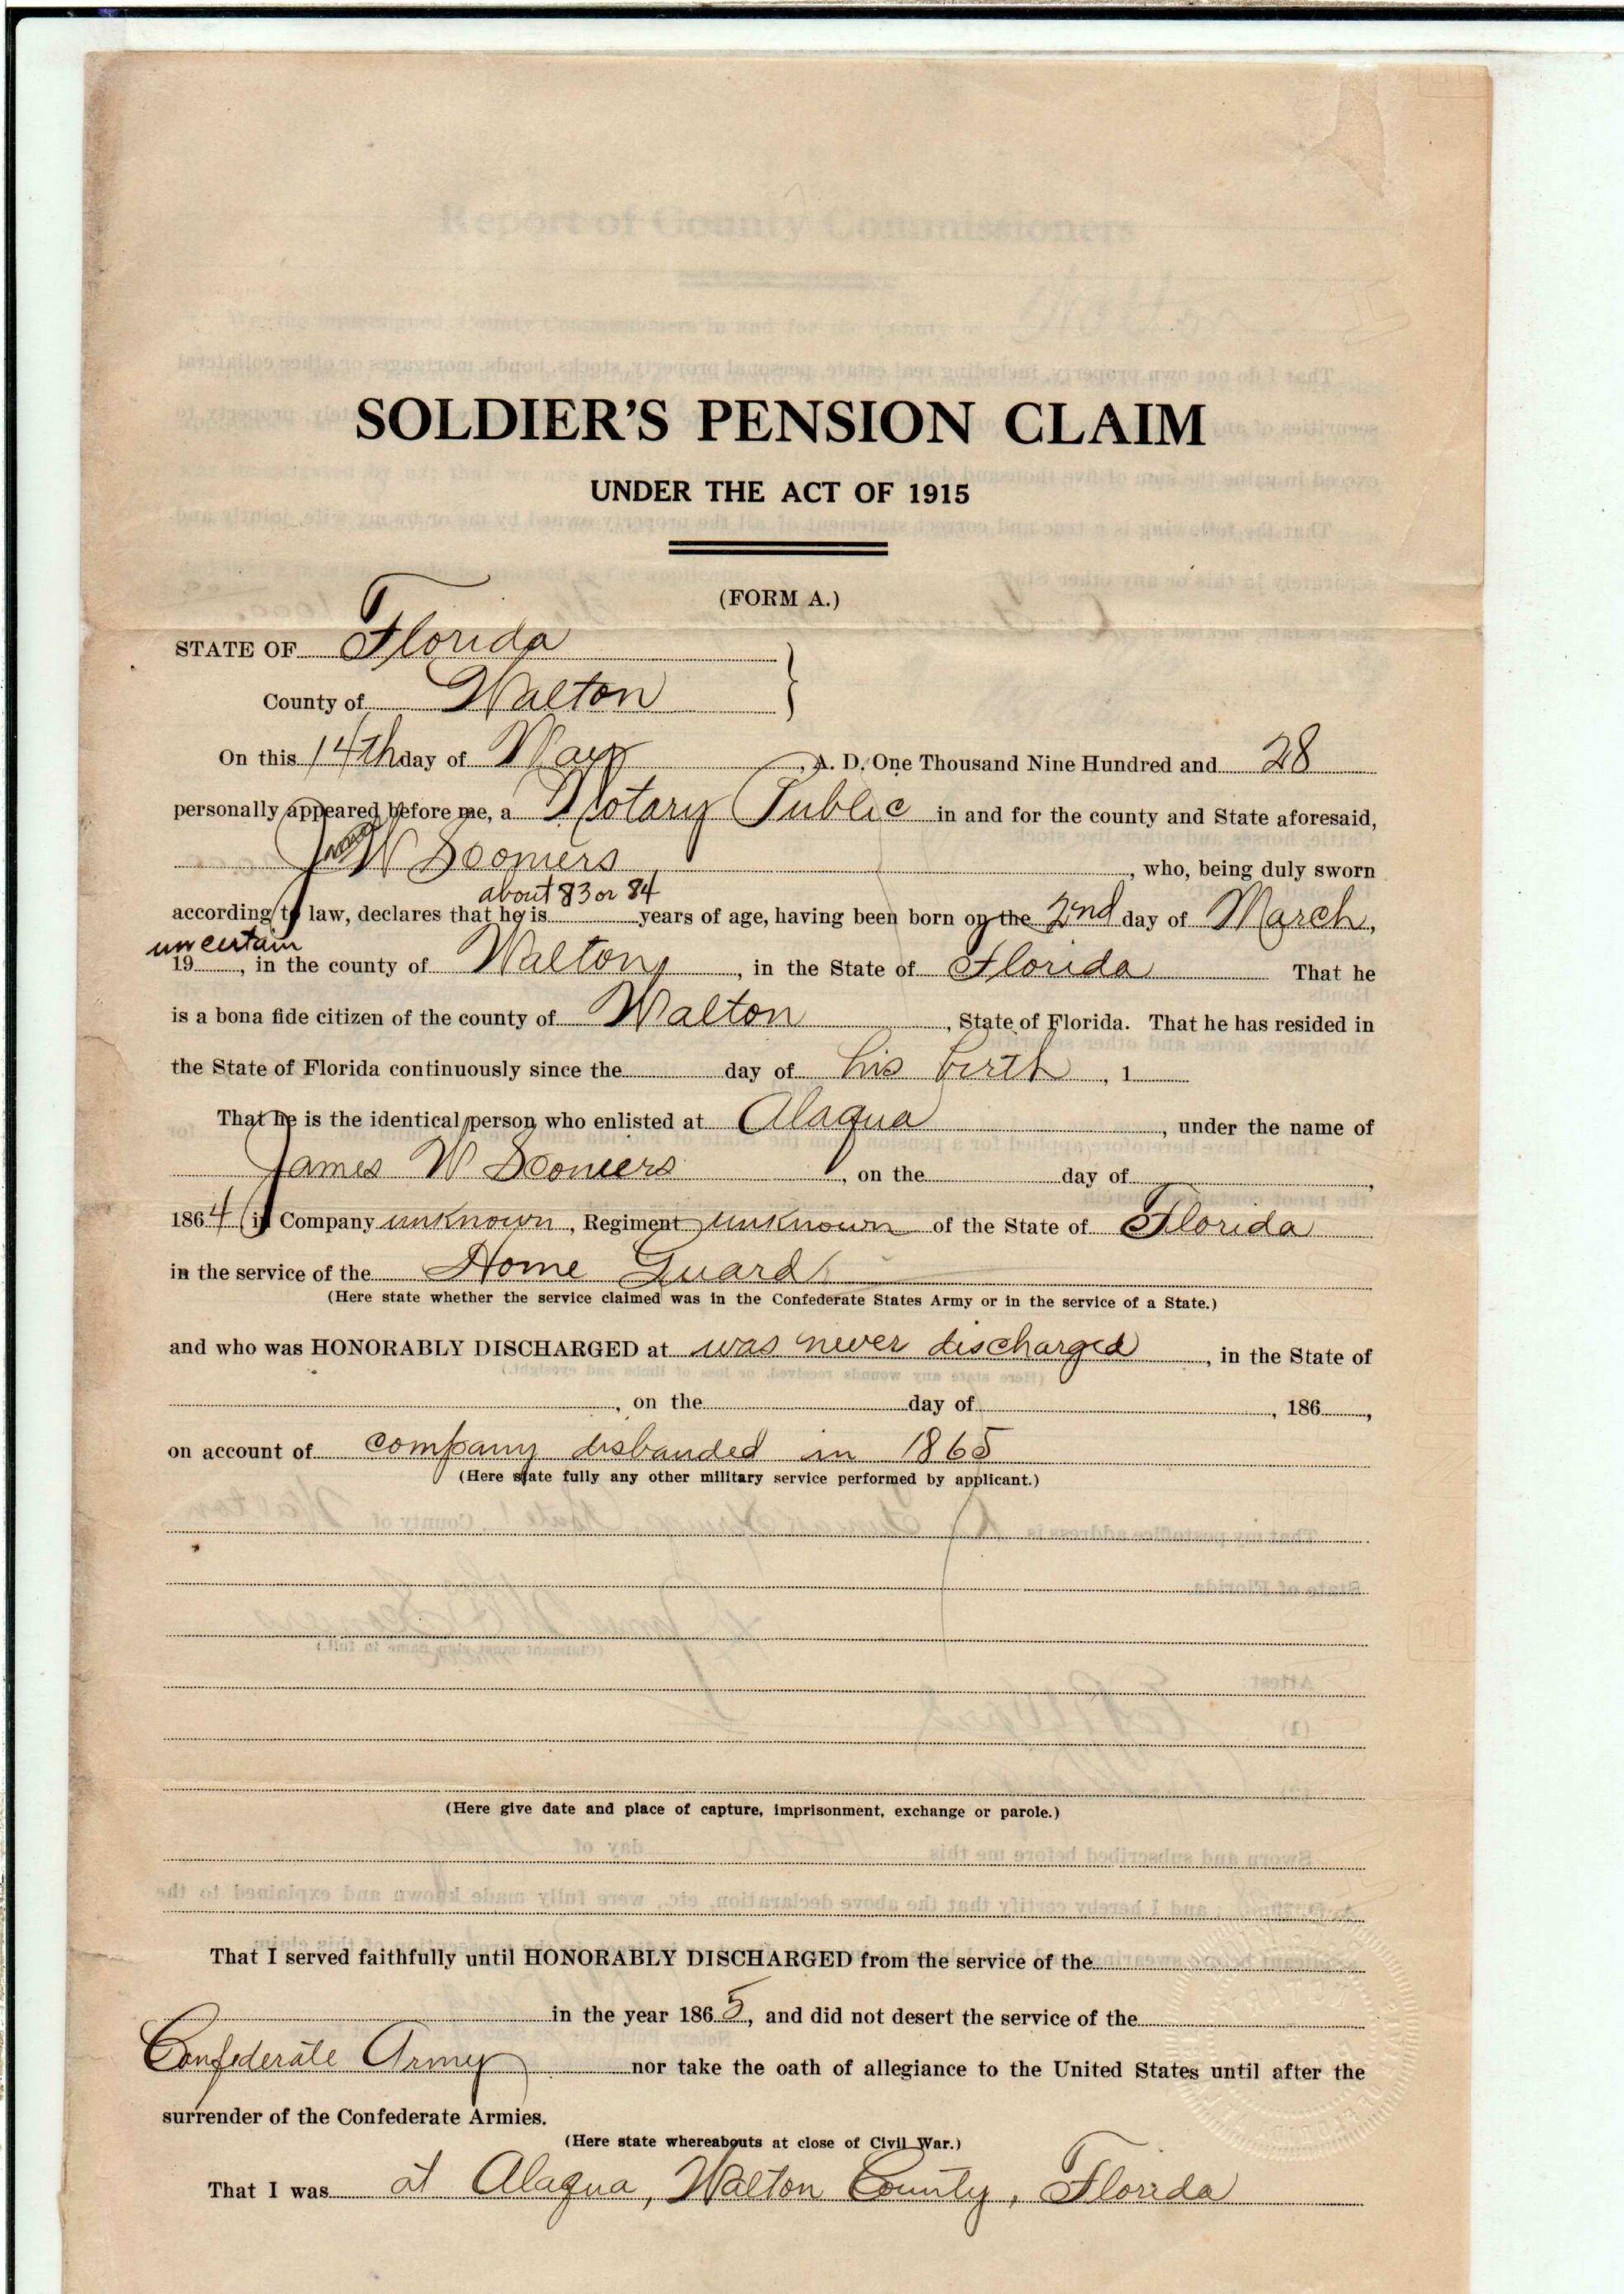 SOLDIER'S PENSION CLAIM
UNDER THE ACT OF 1915
(FORM A.)
STATE OF Florida
County of Walton
On this 14th day of May, A. D. One Thousand Nine Hundred and 28
personally appeared before me, a Notary Public in and for the county and State aforesaid,
James W Scomers, who, being duly sworn
about 83 or 84
according to law, declares that he is years of age, having been born on the 2nd day of March,
uncertain
19, in the county of Walton, in the State of Florida That he
is a bona fide citizen of the county of Walton, State of Florida. That he has resided in
the State of Florida continuously since the day of his birth, 1
That he is the identical person who enlisted at Alaqua, under the name of
James W Scomers, on the day of,
1864 (in Company unknown, Regiment unknown of the State of Florida
in the service of the Home Guard
(Here state whether the service claimed was in the Confederate States Army or in the service of a State.)
and who was HONORABLY DISCHARGED at was never discharged, in the State of
, on the day of, 186,
on account of company disbanded in 1865
(Here state fully any other military service performed by applicant.)
(Here give date and place of capture, imprisonment, exchange or parole.)
That I served faithfully until HONORABLY DISCHARGED from the service of the
in the year 1865, and did not desert the service of the
Confederate Army nor take the oath of allegiance to the United States until after the
surrender of the Confederate Armies.
(Here state whereabouts at close of Civil War.)
That I was at Alaqua, Walton County, Florida